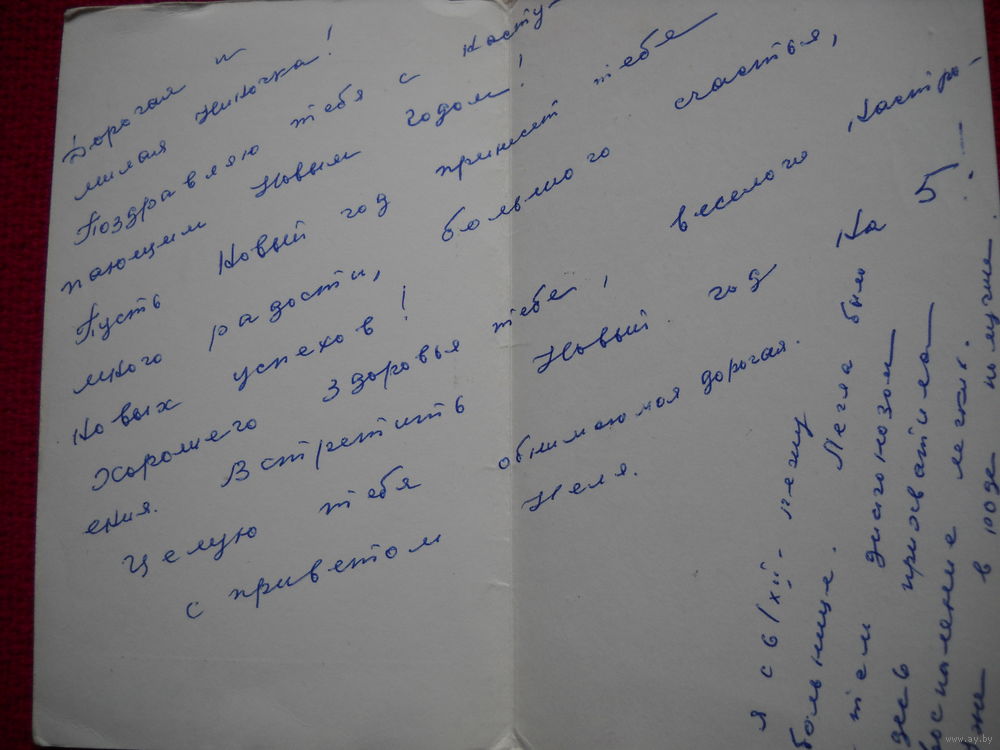 Дорогая и
милая Ниночка!
Поздравляю тебя с насту-
пающим Новым Годом!
Пусть Новый год принесёт тебя
много радости, большого счастья,
новых успехов!
Хорошего здоровья тебе, веселого настро-
ения. Встретить Новый год
Целую тебя обнимаю моя дорогая.
с приветом Неля.
На 5
я с 6/XII- лежу
больнице. Легла было
тем диагнозом
здесь прихватила
воспаление легких.
уже в роде получше.
www.ay.by